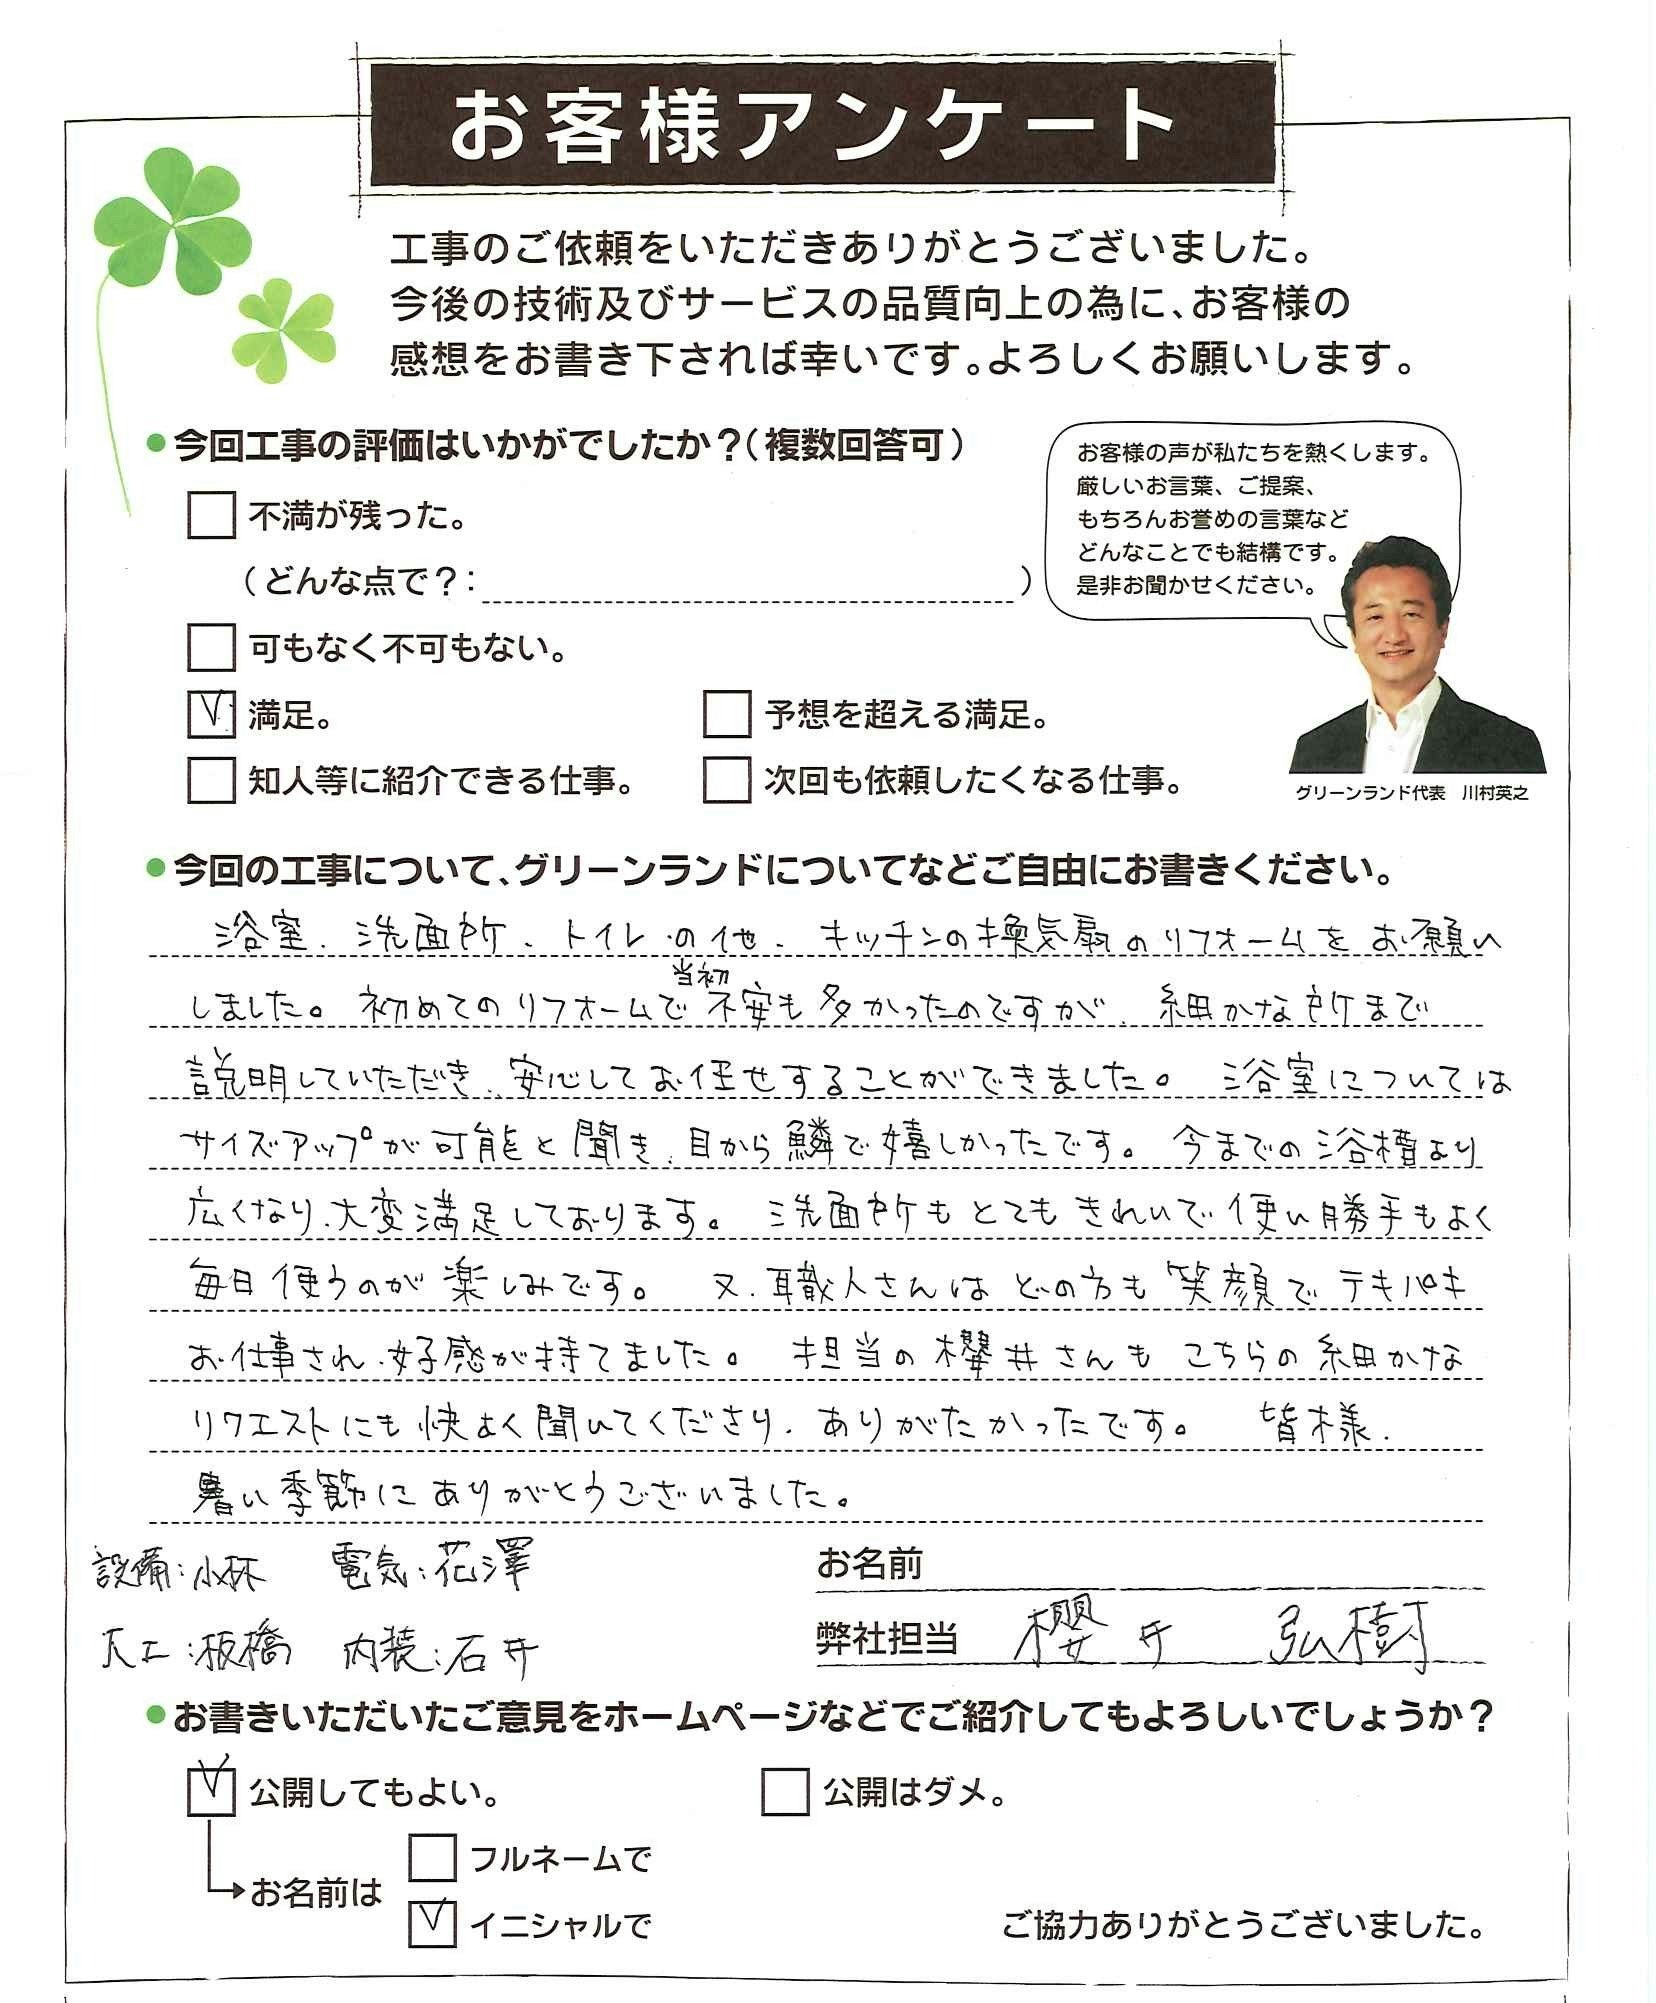 お客様アンケート
工事のご依頼をいただきありがとうございました。
今後の技術及びサービスの品質向上の為に、お客様の
感想をお書き下されば幸いです。よろしくお願いします。
●今回工事の評価はいかがでしたか？（複数回答可）
不満が残った。
（どんな点で？：　）
可もなく不可もない。
満足。
予想を超える満足。
知人等に紹介できる仕事。
次回も依頼したくなる仕事。
お客様の声が私たちを熱くします。
厳しいお言葉、ご提案、
もちろんお誉めの言葉など
どんなことでも結構です。
是非お聞かせください。
グリーンランド代表　川村英之
●今回の工事について、グリーンランドについてなどご自由にお書きください。
浴室、洗面所、トイレの他、キッチンの換気扇のリフォームをお願い
しました。初めてのリフォームで当初不安も多かったのですが、細かな所まで
説明していただき、安心してお任せすることができました。浴室については
サイズアップが可能と聞き、目から鱗で嬉しかったです。今までの浴槽より
広くなり、大変満足しております。洗面所もとてもきれいで使い勝手もよく
毎日使うのが楽しみです。又、職人さんはどの方も笑顔でテキパキ
お仕事され、好感が持てました。担当の櫻井さんもこちらの細かな
リクエストにも快よく聞いてくださり、ありがたかったです。皆様、
暑い季節にありがとうございました。
設備：小林　電気：花澤
大工：板橋　内装：石井
お名前
弊社担当　櫻井　弘樹
●お書きいただいたご意見をホームページなどでご紹介してもよろしいでしょうか？
公開してもよい。
公開はダメ。
お名前は
フルネームで
イニシャルで
ご協力ありがとうございました。